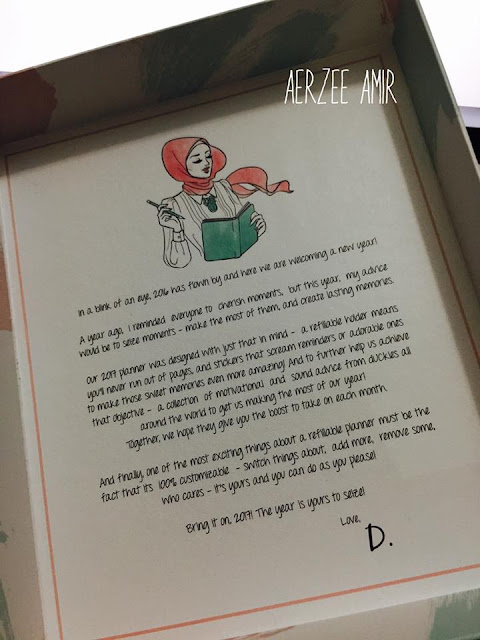 AERZEE AMIR
In a blink of an eye, 2016 has flown by and here we are welcoming a new year!
A year ago, I reminded everyone to cherish moments, but this year, my advice
would be to seize moments - make the most of them, and create lasting memories.
Our 2017 planner was designed with just that in mind - a refillable holder means
you'll never run out of pages, and stickers that scream reminders or adorable ones
to make those sweet memories even more amazing! And to further help us achieve
that objective - a collection of motivational and sound advice from dUCkies all
around the world to get us making the most of our year!
Together, we hope they give you the boost to take on each month.
And finally, one of the most exciting things about a refillable planner must be the
fact that it's 100% customizable - switch things about, add more, remove some,
who cares - it's yours and you can do as you please!
Bring it on, 2017! The year is yours to seize!
Love,
D.